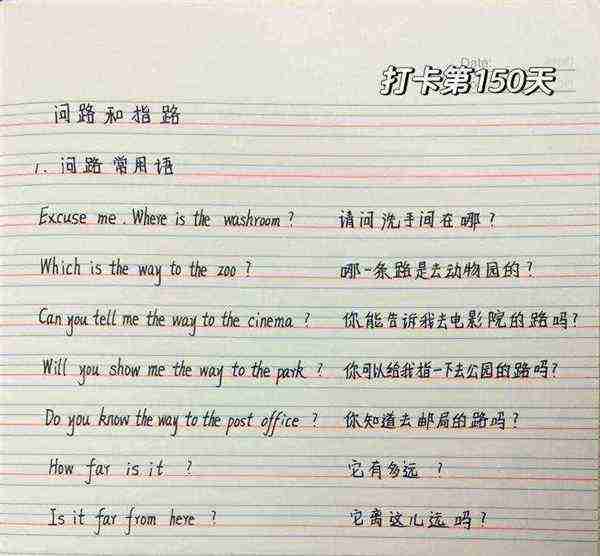 Date:
打卡第150天
问路和指路
1. 问路常用语
Excuse me. Where is the washroom? 请问洗手间在哪?
Which is the way to the zoo? 哪一条路是去动物园的?
Can you tell me the way to the cinema? 你能告诉我去电影院的路吗?
Will you show me the way to the park? 你可以给我指一下去公园的路吗?
Do you know the way to the post office? 你知道去邮局的路吗?
How far is it? 它有多远?
Is it far from here? 它离这儿远吗?